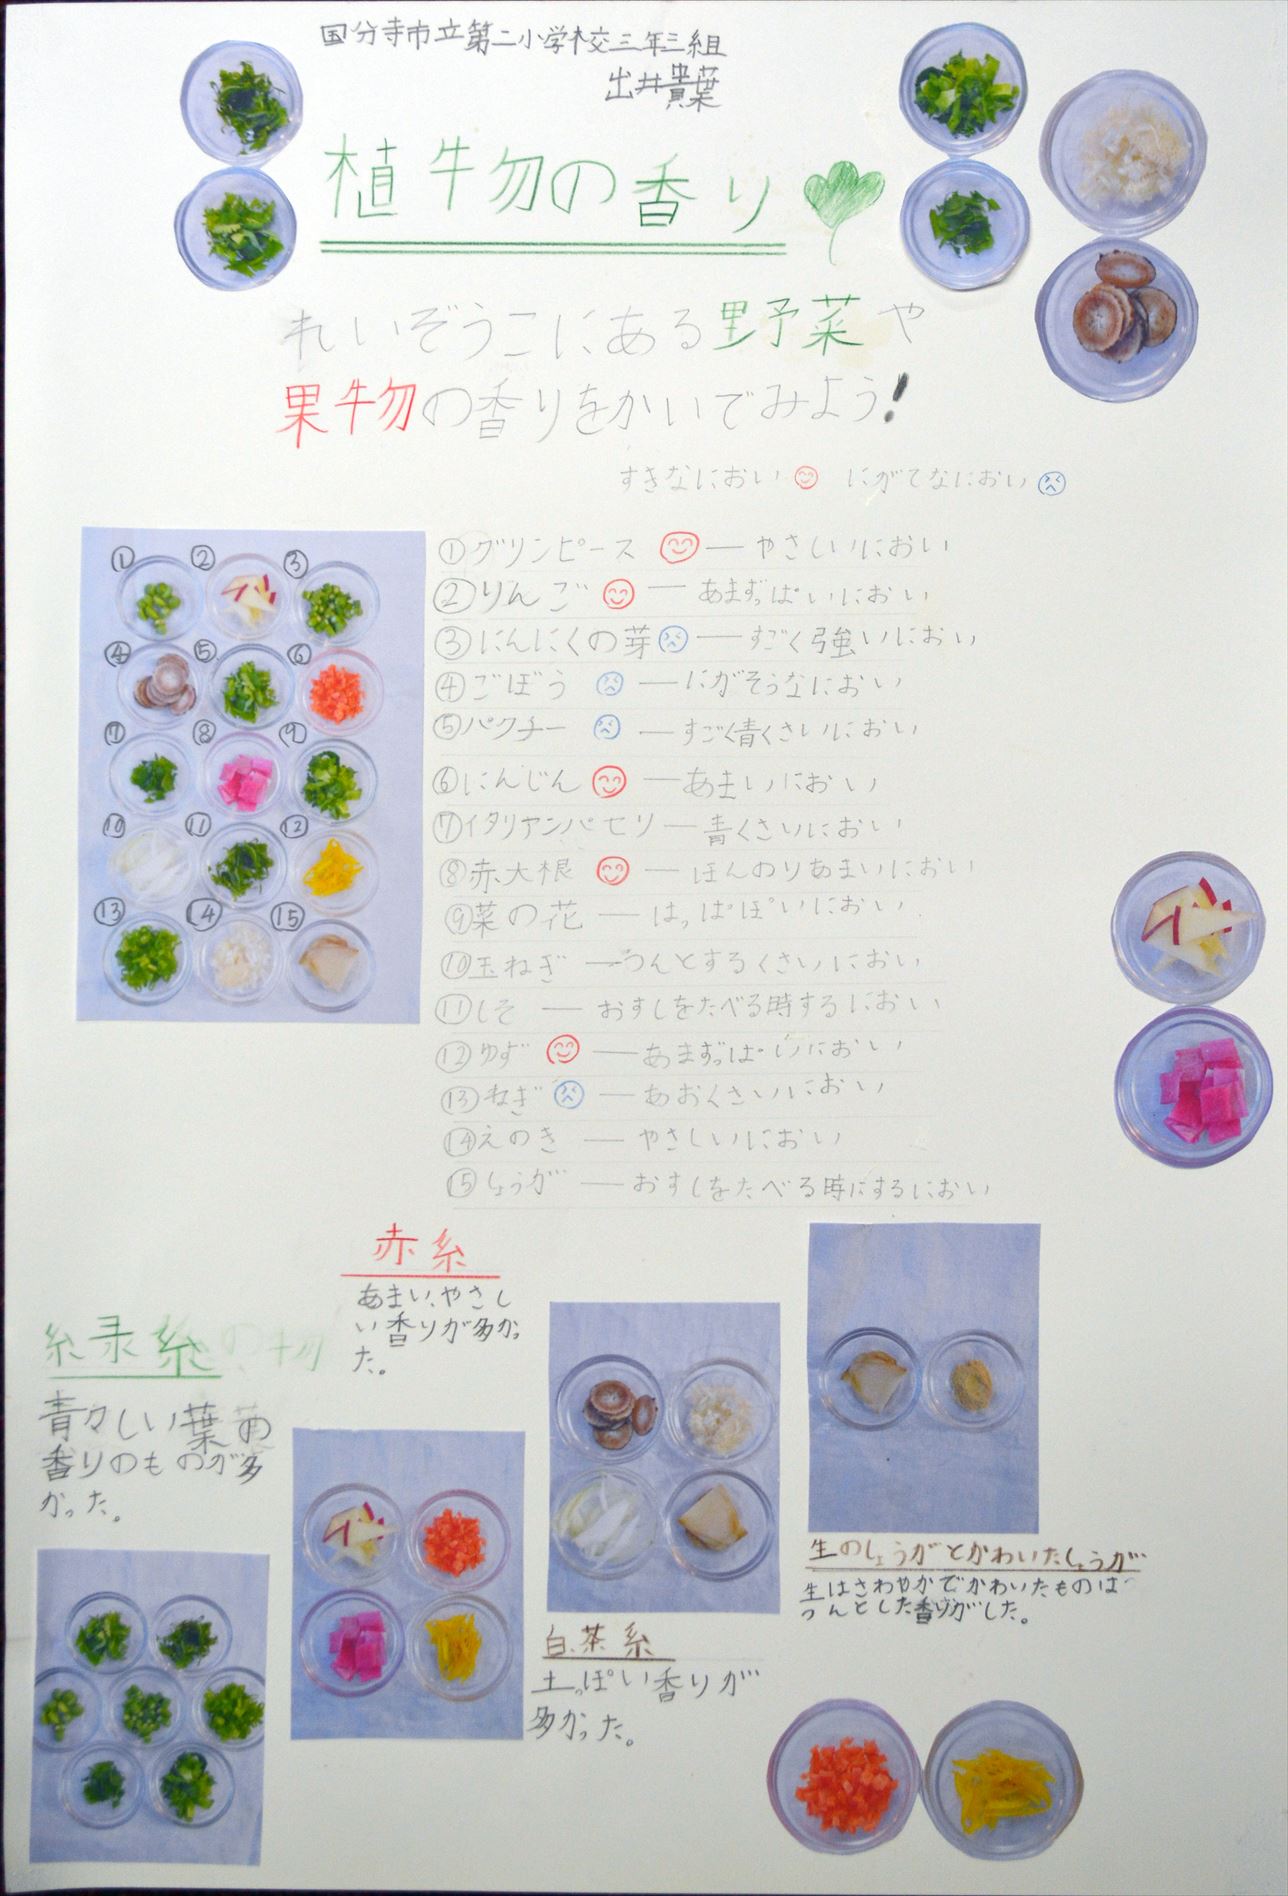 国分寺市立第二小学校三年三組
出井貴葉
植物の香り
れいぞうこにある野菜や
果物の香りをかいでみよう!
すきなにおい にがてなにおい
① ② ③
④ ⑤ ⑥
⑦ ⑧ ⑨
⑩ ⑪ ⑫
⑬ ⑭ ⑮
①グリンピース ― やさしいにおい
②りんご ― あまずっぱいにおい
③にんにくの芽 ― すごく強いにおい
④ごぼう ― にがそうなにおい
⑤パクチー ― すごく青くさいにおい
⑥にんじん ― あまいにおい
⑦イタリアンパセリ ― 青くさいにおい
⑧赤大根 ― ほんのりあまいにおい
⑨菜の花 ― はっぱぽいにおい
⑩玉ねぎ ― つんとするくさいにおい
⑪しそ ― おすしをたべる時するにおい
⑫ゆず ― あまずっぱいにおい
⑬ねぎ ― あおくさいにおい
⑭えのき ― やさしいにおい
⑮しょうが ― おすしをたべる時にするにおい
赤系
あまい、やさし
い香りが多かっ
た。
緑系の物
青々しい葉の
香りのものが多
かった。
白、茶系
土っぽい香りが
多かった。
生のしょうがとかわいたしょうが
生はさわやかでかわいたものは
つんとした香りがした。